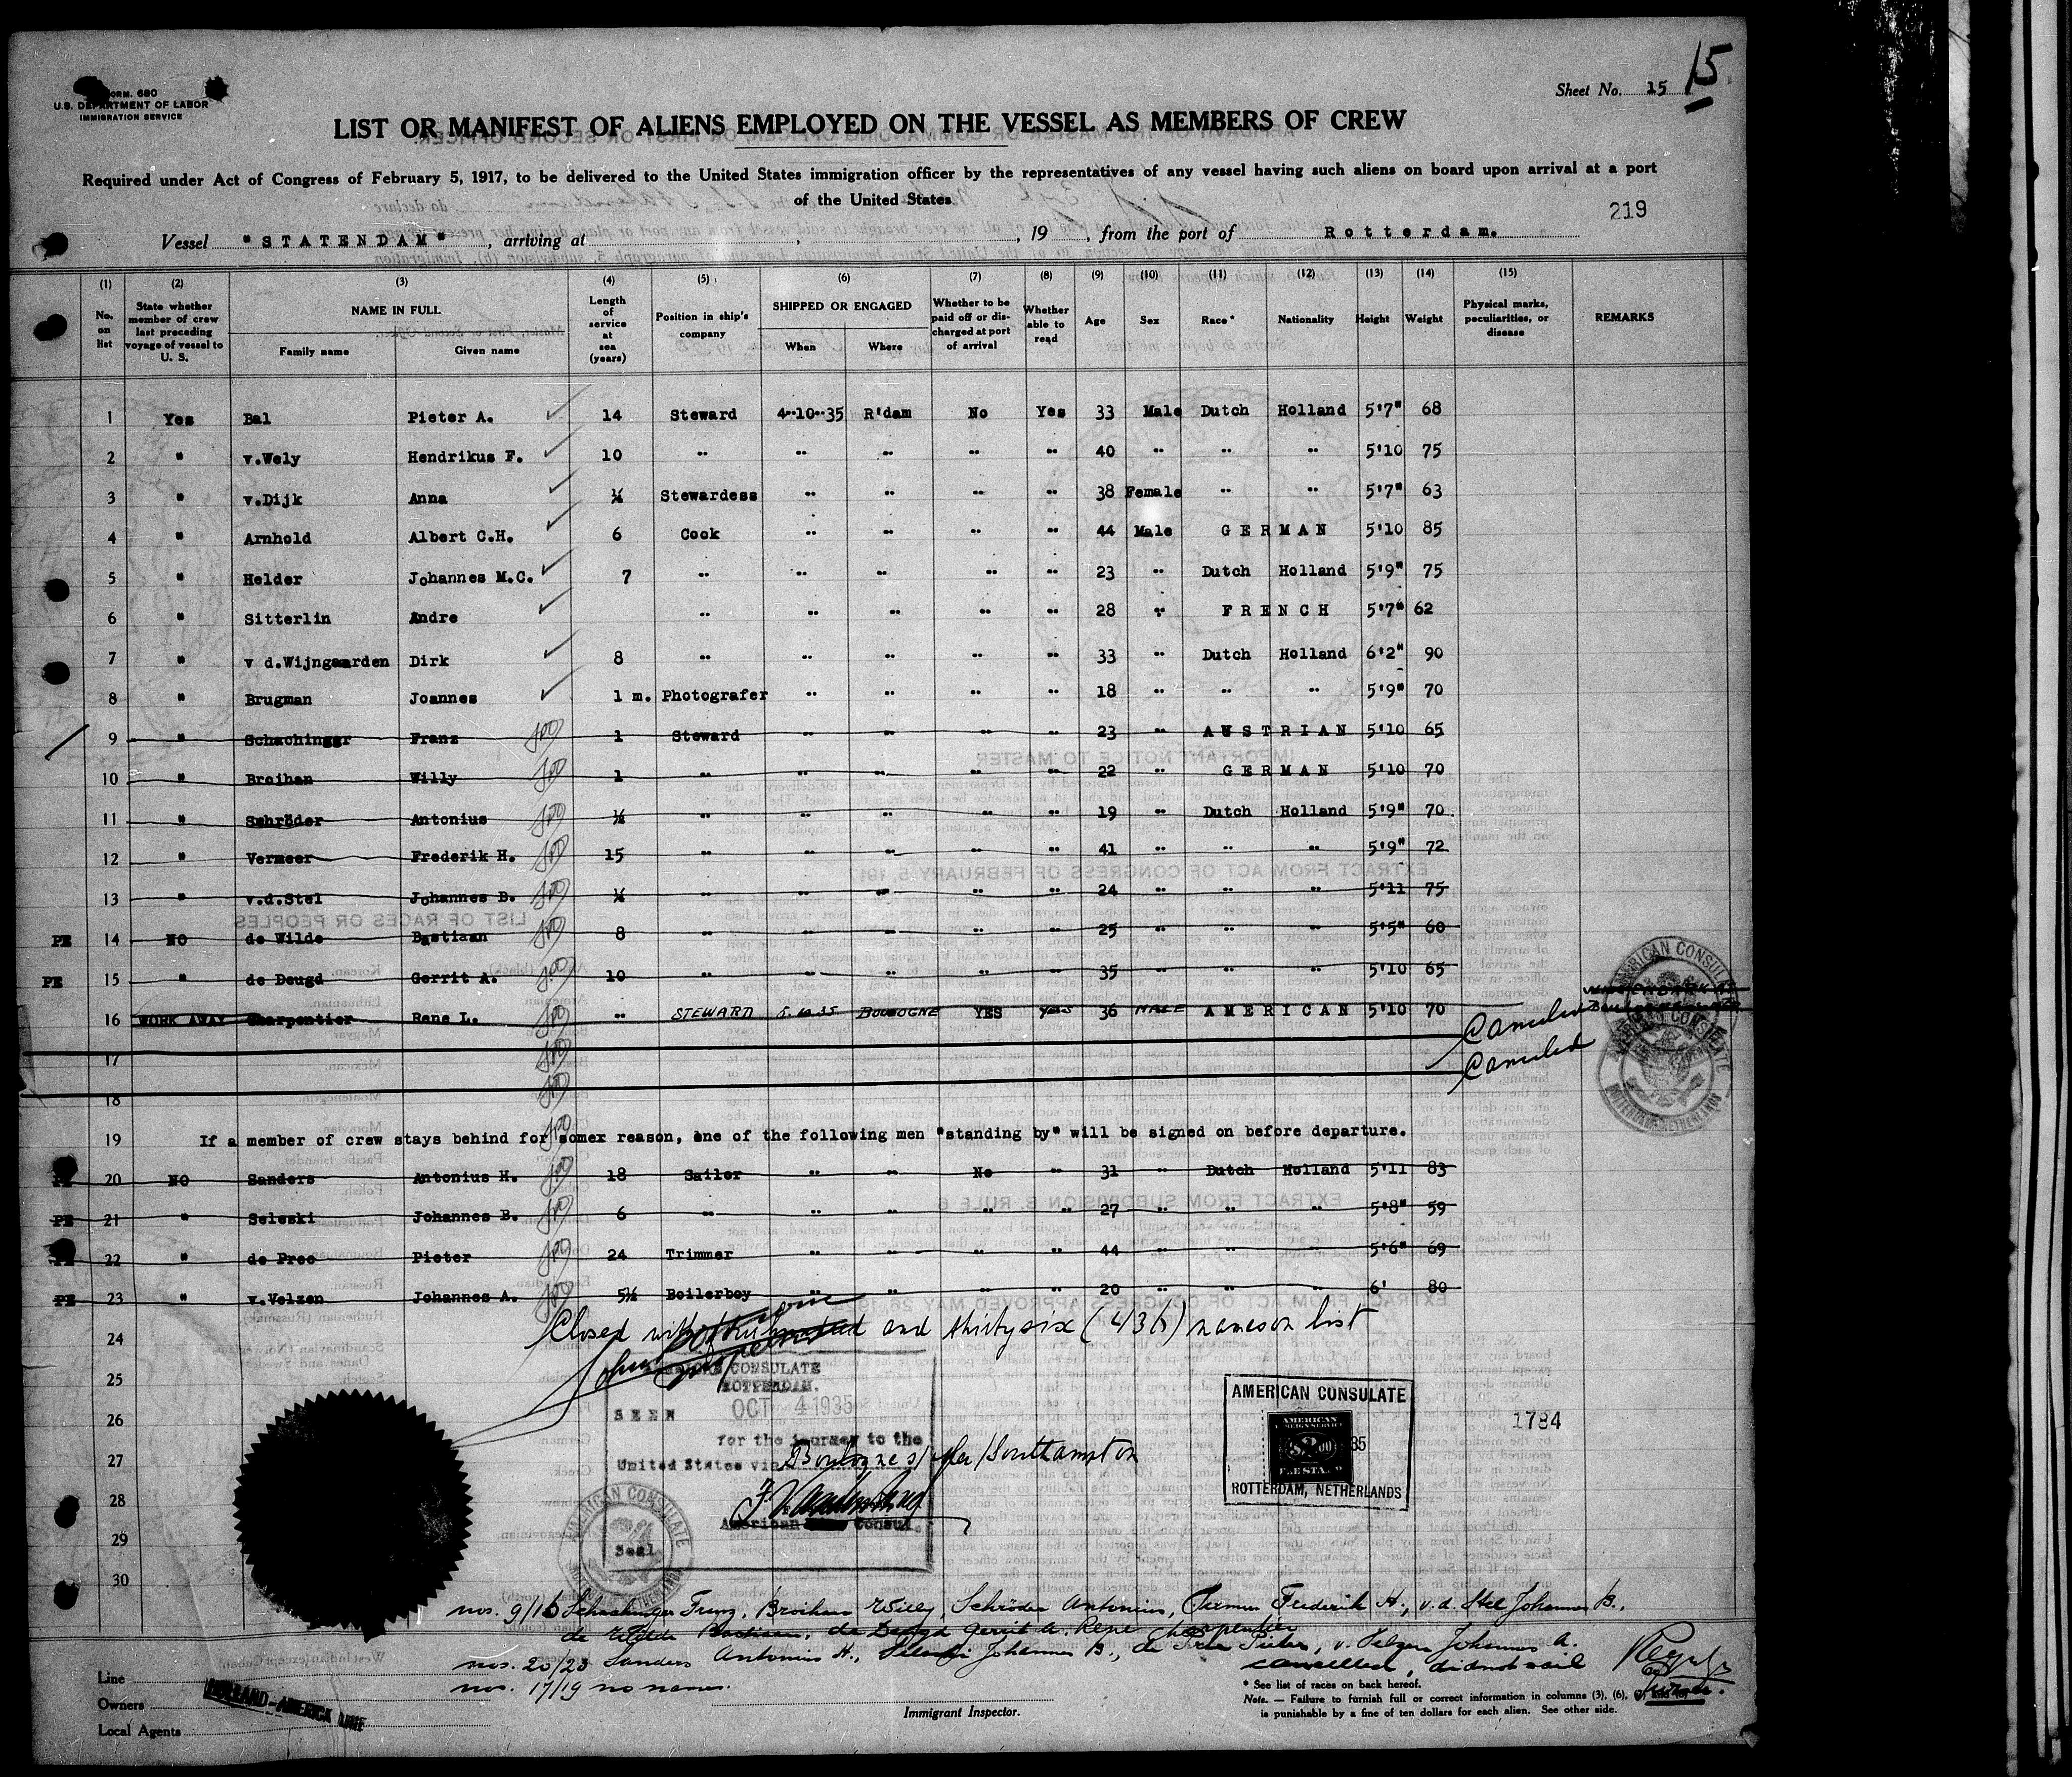 FORM. 680
U.S. DEPARTMENT OF LABOR
IMMIGRATION SERVICE
Sheet No. 15
15
LIST OR MANIFEST OF ALIENS EMPLOYED ON THE VESSEL AS MEMBERS OF CREW
Required under Act of Congress of February 5, 1917, to be delivered to the United States immigration officer by the representatives of any vessel having such aliens on board upon arrival at a port
of the United States
219
Vessel "STATENDAM", arriving at , 19 , from the port of Rotterdam.
(1) (2) (3) (4) (5) (6) (7) (8) (9) (10) (11) (12) (13) (14) (15)
No. on list State whether member of crew last preceding voyage of vessel to U. S. NAME IN FULL Family name Given name Length of service at sea (years) Position in ship's company SHIPPED OR ENGAGED When Where Whether to be paid off or discharged at port of arrival Whether able to read Age Sex Race* Nationality Height Weight Physical marks, peculiarities, or disease REMARKS
1 Yes Bal Pieter A. 14 Steward 4-10-35 R'dam No Yes 33 Male Dutch Holland 5'7" 68
2 " v.Wely Hendrikus F. 10 " " " " " 40 " " " 5'10 75
3 " v.Dijk Anna ½ Stewardess " " " " 38 Female " " 5'7" 63
4 " Arnhold Albert C.H. 6 Cook " " " " 44 Male GERMAN 5'10 85
5 " Helder Johannes M.C. 7 " " " " " 23 " Dutch Holland 5'9" 75
6 " Sitterlin Andre " " " " " 28 " FRENCH 5'7" 62
7 " v d.Wijngaarden Dirk 8 " " " " " 33 " Dutch Holland 6'2" 90
8 " Brugman Joannes 1 m. Photografer " " " " 18 " " " 5'9" 70
9 " Schachinger Franz 1 Steward " " " " 23 " AUSTRIAN 5'10 65
10 " Broihan Willy 1 " " " " " 22 " GERMAN 5'10 70
11 " Schröder Antonius ½ " " " " " 19 " Dutch Holland 5'9" 70
12 " Vermeer Frederik H. 15 " " " " " 41 " " " 5'9" 72
13 " v.d.Stel Johannes B. ½ " " " " " 24 " " " 5'11 75
PE 14 NO de Wilde Bastiaan 8 " " " " " 25 " " " 5'5" 60
PE 15 " de Deugd Gerrit A. 10 " " " " " 35 " " " 5'10 65
16 WORK AWAY Charpentier Rene L. " STEWARD BOULOGNE YES YES 36 MALE AMERICAN 5'10 70
17 Canceled
18 Canceled
19 If a member of crew stays behind for somex reason, one of the following men "standing by" will be signed on before departure.
PE 20 NO Sanders Antonius H. 18 Sailer " " No " 31 " Dutch Holland 5'11 83
PE 21 " Seleski Johannes B. 6 " " " " " 27 " " " 5'8" 59
PE 22 " de Pree Pieter 24 Trimmer " " " " 44 " " " 5'6" 69
PE 23 " v.Velzen Johannes A. 5½ Boilerboy " " " " 20 " " " 6' 80
24 Closed with and thirty six (436) names on list
25 CONSULATE
ROTTERDAM.
26 SEEN OCT 4 1935
for the journey to the
27 United States via Boulogne s/Mer/Southampton
28
American Consul.
29 Seal
30
AMERICAN CONSULATE
AMERICAN
$2.00
35
ROTTERDAM, NETHERLANDS
1784
AMERICAN CONSULATE
nos. 9/16 Schachinger Franz, Broihan Willy, Schröder Antonius, Vermeer Frederik H., v.d. Stel Johannes B.,
de Wilde Bastiaan, de Deugd Gerrit A. Rene Charpentier
nos. 20/23 Sanders Antonius H., Seleski Johannes B., de Pree Pieter, v. Velzen Johannes A.
cancelled, did not sail
nos. 17/19 no names.
Line
Owners HOLLAND-AMERICA LINE
Local Agents
Immigrant Inspector.
* See list of races on back hereof.
Note. — Failure to furnish full or correct information in columns (3), (6), (7)
is punishable by a fine of ten dollars for each alien. See other side.